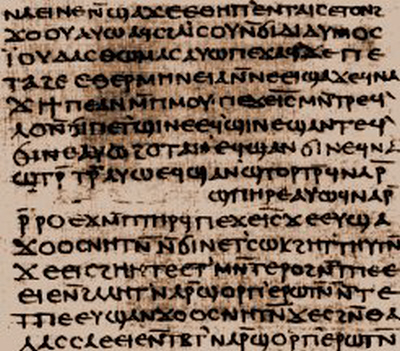 ⲛⲁⲉⲓⲛⲉⲛ̄ϣⲁϫⲉⲉⲑⲏⲡⲉⲛⲧⲁⲓ̄ⲥ̄ⲉⲧⲟⲛϩ
ϫⲟⲟⲩⲁⲩⲱⲁϥⲥϩⲁⲓ̈ⲥⲟⲩⲛ̄ϭⲓⲇⲓⲇⲩⲙⲟⲥ
ⲓ̈ⲟⲩⲇⲁⲥⲑⲱⲙⲁⲥⲁⲩⲱⲡⲉϫⲁϥϫⲉⲡⲉ
ⲧⲁϩⲉⲉⲑⲉⲣⲙⲏⲛⲉⲓⲁⲛ̄ⲛⲉⲉⲓϣⲁϫⲉϥⲛⲁ
ϫⲓϯⲡⲉⲁⲛⲙ̄ⲡⲙⲟⲩⲡⲉϫⲉⲓ̄ⲥ̄ⲙⲛ̄ⲧⲣⲉϥ
ⲗⲟⲛ̄ϭⲓⲡⲉⲧϣⲓⲛⲉⲉϥϣⲓⲛⲉϣⲁⲛⲧⲉϥ
ϭⲓⲛⲉⲁⲩⲱϩⲟⲧⲁⲛⲉϥϣⲁⲛϭⲓⲛⲉϥⲛⲁ
ϣⲧⲣ̄ⲧⲣ̄ⲁⲩⲱⲉϥϣⲁⲛϣⲧⲟⲣⲧⲣ̄ϥⲛⲁⲣ̄
ϣⲡⲏⲣⲉⲁⲩⲱϥⲛⲁⲣ̄
ⲣ̄ⲣⲟⲉϫⲙ̄ⲡⲧⲏⲣϥⲡⲉϫⲉⲓ̄ⲥ̄ϫⲉⲉⲩϣⲁ
ϫⲟⲟⲥⲛⲏⲧⲛ̄ⲛ̄ϭⲓⲛⲉⲧⲥⲱⲕϩⲏⲧⲧⲏⲩⲧⲛ̄
ϫⲉⲉⲓⲥϩⲏⲏⲧⲉⲉⲧⲙⲛ̄ⲧⲉⲣⲟϩⲛ̄ⲧⲡⲉⲉ
ⲉⲓⲉⲛ̄ϩⲁⲗⲏⲧⲛⲁⲣ̄ϣⲟⲣⲡⲉⲣⲱⲧⲛ̄ⲛ̄ⲧⲉ
ⲧⲡⲉⲉⲩϣⲁⲛϫⲟⲟⲥⲛⲏⲧⲛ̄ϫⲉⲥϩⲛ̄ⲑⲁ
ⲗⲁⲥⲥⲁⲉⲉⲓⲉⲛ̄ⲧⲃⲧⲛⲁⲣ̄ϣⲟⲣⲡⲉⲣⲱⲧⲛ̄